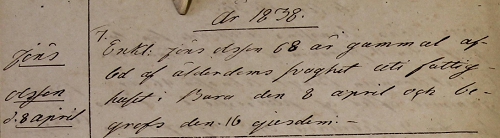 År 1838.
Jöns
Olsson
d. 8 april
7. Enkl: Jöns Olsson 68 år gammal af-
led af ålderdoms svaghet uti fattig-
huset i Bara den 8 april och be-
grofs den 16 ejusdem: -